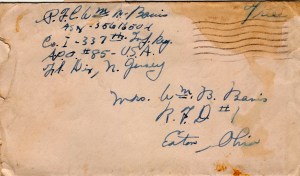 Free
PFC Wm B. Baris
ASN-35616501
Co. I-337th Inf. Reg.
APO #85-U.S.A.
Ft. Dix, N. Jersey
Mrs. Wm. B. Baris
R.F.D #1
Eaton, Ohio